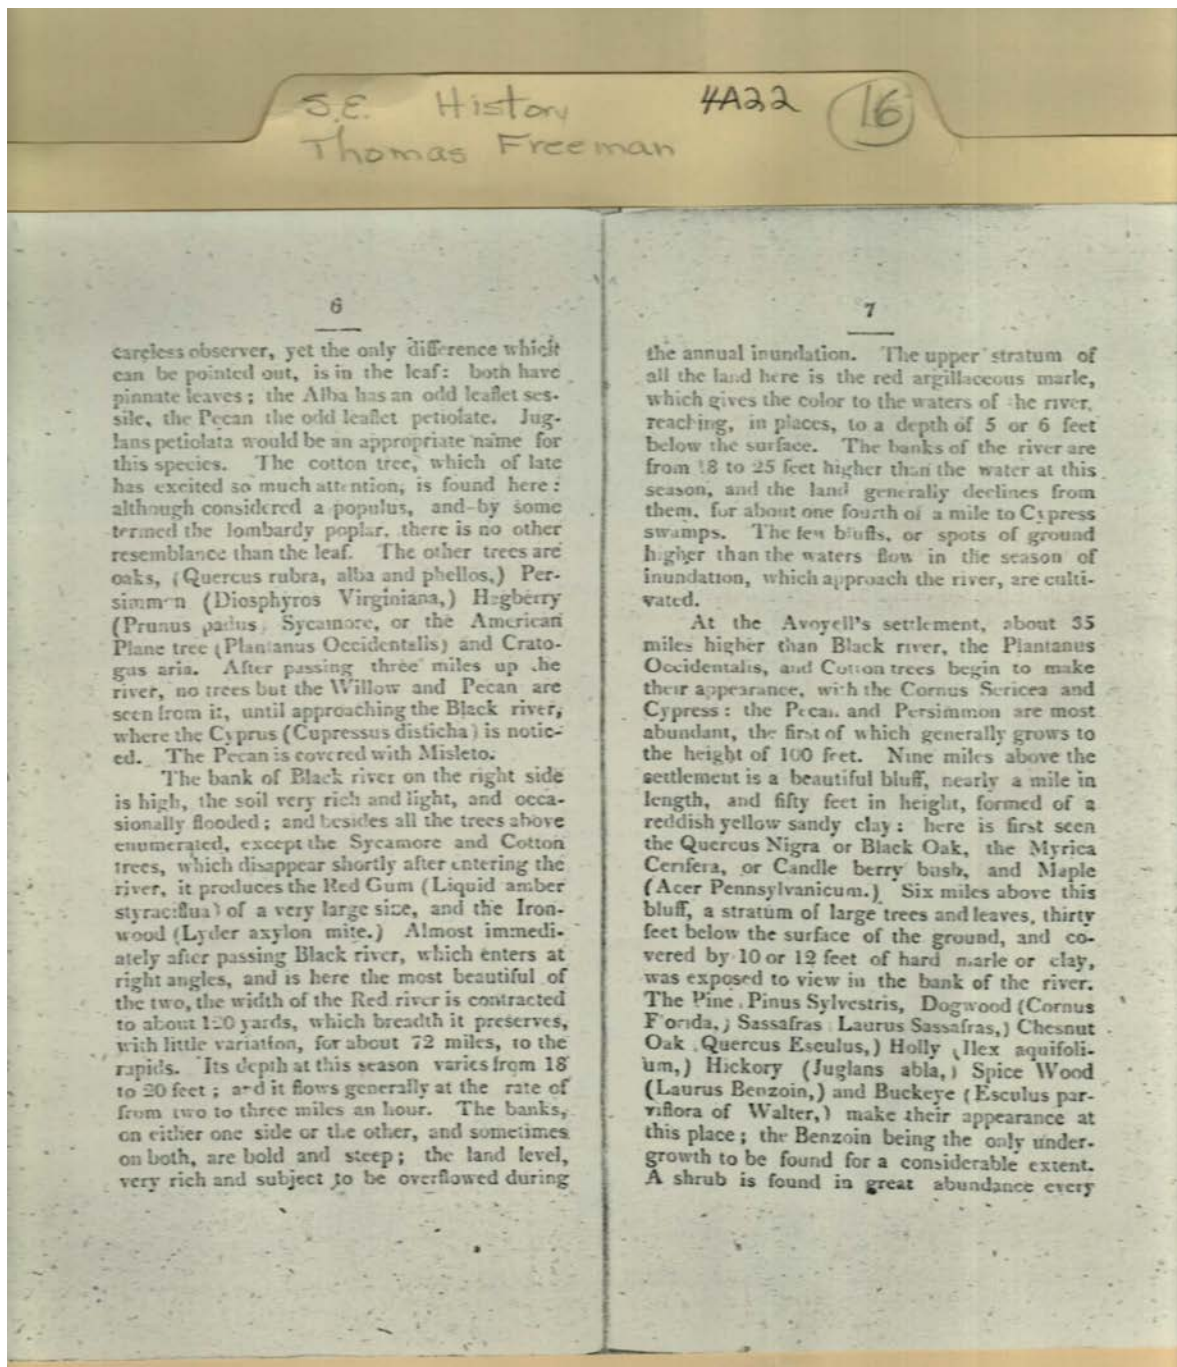 S.E. History 4A22 16
Thomas Freeman
6
careless observer, yet the only difference which
can be pointed out, is in the leaf: both have
pinnate leaves; the Alba has an odd leaflet ses-
sile, the Pecan the odd leaflet petiolate. Jug-
lans petiolata would be an appropriate name for
this species. The cotton tree, which of late
has excited so much attention, is found here:
although considered a populus, and by some
termed the lombardy poplar, there is no other
resemblance than the leaf. The other trees are
oaks, (Quercus rubra, alba and phellos,) Per-
simmon (Diosphyros Virginiana,) Hagberry
(Prunus padus, Sycamore, or the American
Plane tree (Plantanus Occidentalis) and Crato-
gus aria. After passing three miles up the
river, no trees but the Willow and Pecan are
seen from it, until approaching the Black river,
where the Cyprus (Cupressus disticha) is notic-
ed. The Pecan is covered with Misleto.
The bank of Black river on the right side
is high, the soil very rich and light, and occa-
sionally flooded; and besides all the trees above
enumerated, except the Sycamore and Cotton
trees, which disappear shortly after entering the
river, it produces the Red Gum (Liquid amber
styraciflua) of a very large size, and the Iron-
wood (Lyder axylon mite.) Almost immedi-
ately after passing Black river, which enters at
right angles, and is here the most beautiful of
the two, the width of the Red river is contracted
to about 120 yards, which breadth it preserves,
with little variation, for about 72 miles, to the
rapids. Its depth at this season varies from 18
to 20 feet; and it flows generally at the rate of
from two to three miles an hour. The banks,
on either one side or the other, and sometimes
on both, are bold and steep; the land level,
very rich and subject to be overflowed during
7
the annual inundation. The upper stratum of
all the land here is the red argillaceous marle,
which gives the color to the waters of the river,
reaching, in places, to a depth of 5 or 6 feet
below the surface. The banks of the river are
from 18 to 25 feet higher than the water at this
season, and the land generally declines from
them, for about one fourth of a mile to Cypress
swamps. The few bluffs, or spots of ground
higher than the waters flow in the season of
inundation, which approach the river, are culti-
vated.
At the Avoyell's settlement, about 35
miles higher than Black river, the Plantanus
Occidentalis, and Cotton trees begin to make
their appearance, with the Cornus Sericea and
Cypress: the Pecan and Persimmon are most
abundant, the first of which generally grows to
the height of 100 feet. Nine miles above the
settlement is a beautiful bluff, nearly a mile in
length, and fifty feet in height, formed of a
reddish yellow sandy clay: here is first seen
the Quercus Nigra or Black Oak, the Myrica
Cerifera, or Candle berry bush, and Maple
(Acer Pennsylvanicum.) Six miles above this
bluff, a stratum of large trees and leaves, thirty
feet below the surface of the ground, and co-
vered by 10 or 12 feet of hard marle or clay,
was exposed to view in the bank of the river.
The Pine, Pinus Sylvestris, Dogwood (Cornus
Florida,) Sassafras (Laurus Sassafras,) Chesnut
Oak (Quercus Esculus,) Holly (Ilex aquifoli-
um,) Hickory (Juglans abla,) Spice Wood
(Laurus Benzoin,) and Buckeye (Esculus par-
viflora of Walter,) make their appearance at
this place; the Benzoin being the only under-
growth to be found for a considerable extent.
A shrub is found in great abundance every